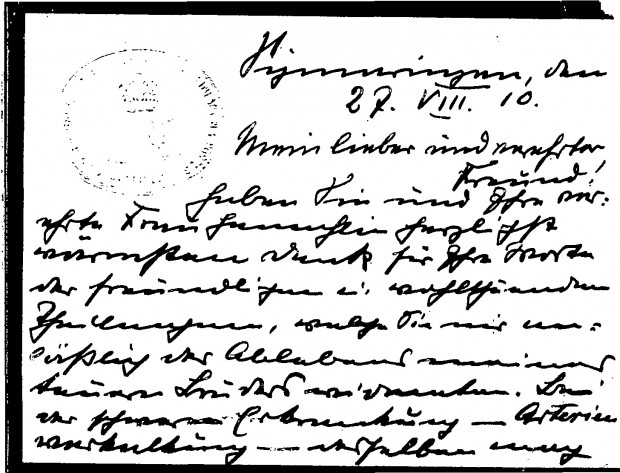 Sigmaringen, den
27. VIII. 10.
Mein lieber und verehrter
Freund!
Haben Sie und Ihre ver-
ehrte Frau Gemahlin herzlichst
wärmsten Dank für Ihre Worte
der freundlichen u. wohlthuenden
Theilnahme, welche Sie mir an-
läßlich des Ablebens meines
teuren Bruders widmeten. Bei
der schweren Erkrankung — Arterien
verkalkung — desselben mag